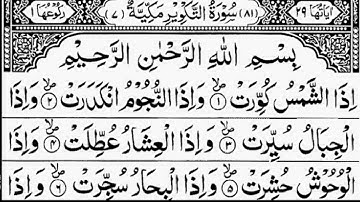 اٰیَاتُهَا ٢٩ (٨١) سُوْرَةُ التَّكْوِیْرِ مَكِّیَّةٌ (٧) رُكُوْعُهَا ١
بِسْمِ اللّٰهِ الرَّحْمٰنِ الرَّحِیْمِ
اِذَا الشَّمْسُ كُوِّرَتْ ۪ۙ﴿١﴾ وَاِذَا النُّجُوْمُ انْكَدَرَتْ ۪ۙ﴿٢﴾ وَاِذَا
الْجِبَالُ سُیِّرَتْ ۪ۙ﴿٣﴾ وَاِذَا الْعِشَارُ عُطِّلَتْ ۪ۙ﴿٤﴾ وَاِذَا
الْوُحُوْشُ حُشِرَتْ ۪ۙ﴿٥﴾ وَاِذَا الْبِحَارُ سُجِّرَتْ ۪ۙ﴿٦﴾ وَاِذَا